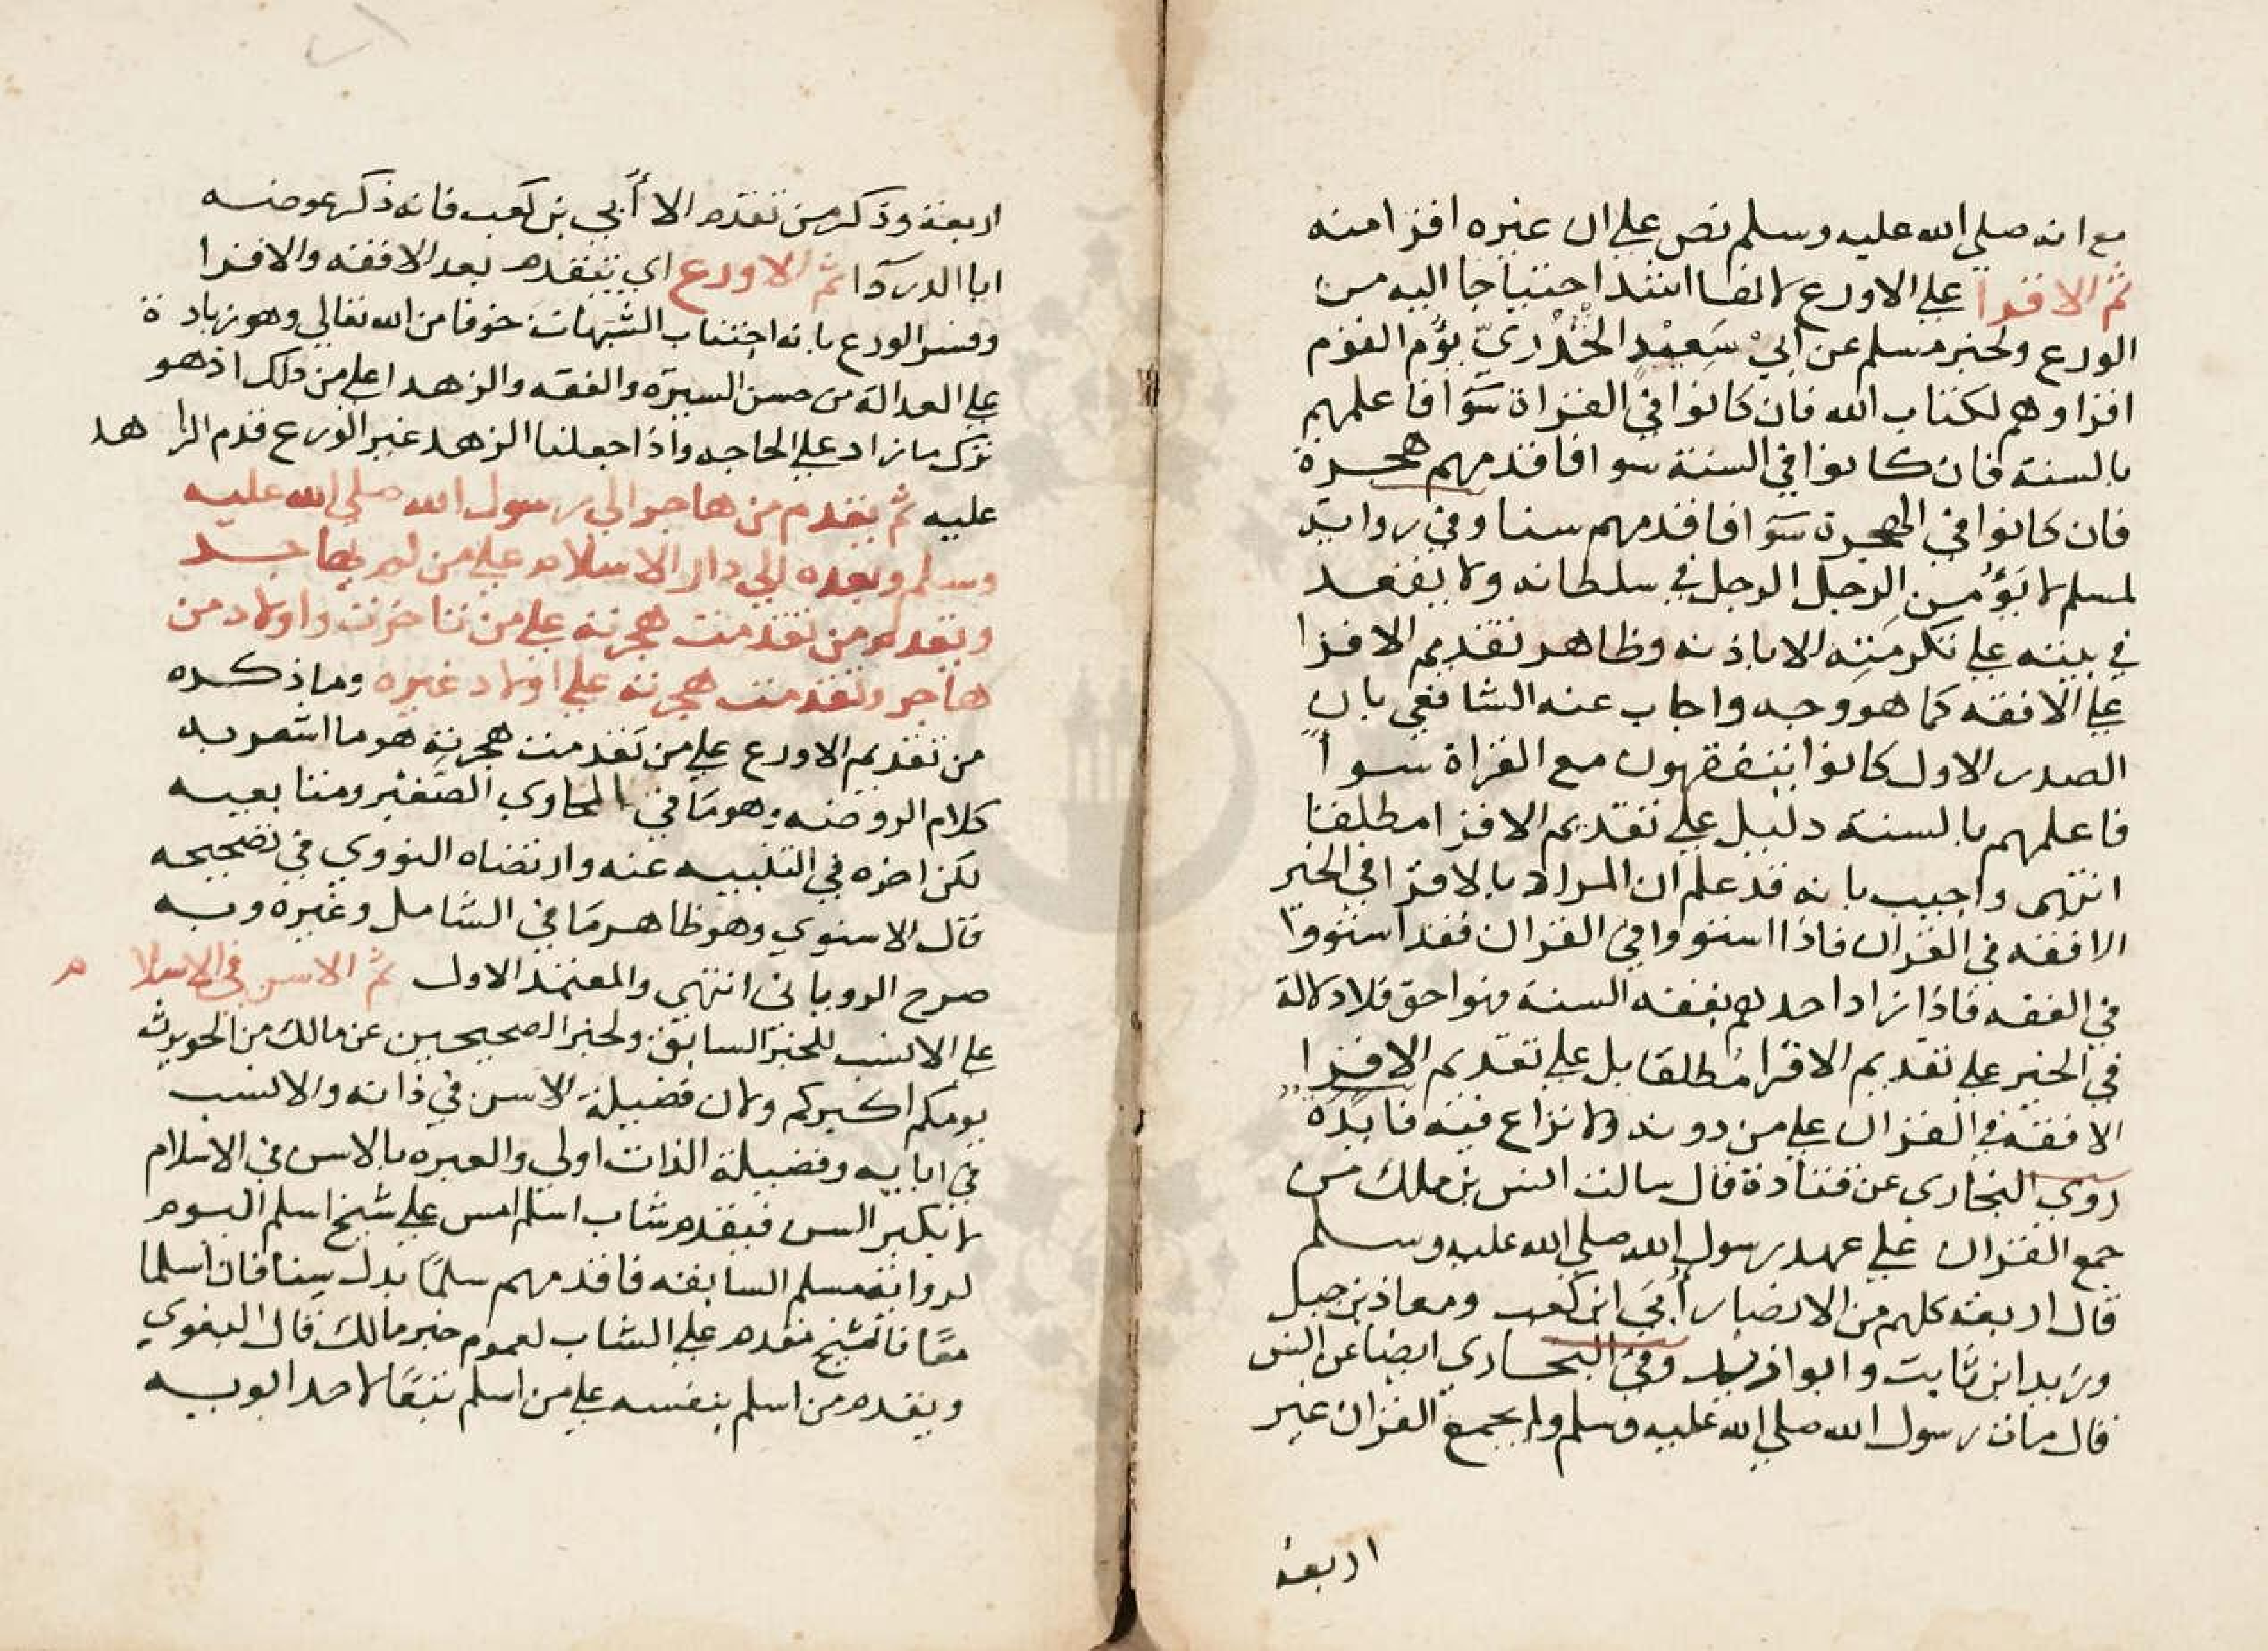 مع انه صلي الله عليه وسلم نص علي ان غيره اقرا منه
ثم الاقرا علي الاورع لانها اشد احتياجا اليه من
الورع ولخبر مسلم عن أبيْ سَعِيْدٍ الخُدْريّ يؤم القوم
اقراوهم لكتاب الله فان كانوا في القراة سَوَا فاعلمهم
بالسنة فان كانوا في السنة سوا فاقدمهم هجرة
فان كانوا في الهجرة سَوَا فاقدمهم سنا وفي رواية
لمسلم لا يَؤُمّن الرجل الرجل في سلطانه ولا يقعد
في بيته علي تكرِمَتِه الا باذنه وظاهر تقديم الاقرا
علي الافقه كما هو وجه واجاب عنه الشافعي بان
الصدر الاول كانوا يتفقهون مع القراة سوا
فاعلمهم بالسنة دليل علي تقديم الاقرا مطلقا
انتهي واجيب بانه قد علم ان المراد بالاقرا في الخبر
الافقه في القران فاذا استووا في القران فقد استووا
في الفقه فاذا زاد احدهم بفقه السنة فهو احق فلا دلالة
في الخبر علي تقديم الاقرا مُطلقا بل علي تقديم الاقرا
الافقه في القران علي من دونه ولا نزاع فيه فايدة
روي البخاري عن قتادة قال سالت انس بن ملك من
جمع القران علي عهد رسول الله صلي الله عليه وسلم
قال اربعة كلهم من الانصار أُبَي ابن كعب ومعاذ بن جبل
وزيد ابن ثابت وابوا زيد وفي البخاري ايضا عن انس
قال مات رسول الله صلي الله عليه وسلم ولم يجمع القران غير
اربعة
اربعة وذكر من تقدم الا أُبي بن كعب فانه ذكر عوضه
ابا الدردآ ثم الاورع اي يتقدم بعد الافقه والاقرا
وفسر الورع بانه اجتناب الشبهات خوفا من الله تعالي وهو زيادة
علي العدالة من حسن السيرة والفقه والزهد اعلي من ذلك اذ هو
ترك ما زاد علي الحاجه واذا جعلنا الزهد غير الورع قدم الزاهد
عليه ثم يقدم من هاجر الي رسول الله صلي الله عليه
وسلم وبعده الي دار الاسلام علي من لم يهاجر
ويقدم من تقدمت هجرته علي من تاخرت واولاد من
هاجر وتقدمت هجرته علي اولاد غيره وما ذكره
من تقديم الاورع علي من تقدمت هجرته هو ما اشعر به
كلام الروضه وهو مَا في الحاوي الصغير ومتابعيه
لكن اخره في التنبيه عنه وارتضاه النووي في تصحيحه
قال الاسنوي وهو ظاهر مَا في الشامل وغيره وبه
صرح الروياني انتهي والمعتمد الاول ثم الاسن في الاسلام
علي الانسب للخبر السابق ولخبر الصحيحين عن مالك بن الحويرث
يومكم اكبركم ولان فضيلة الاسن في ذاته والانسب
في ابايه وفضيلة الذات اولي والعبره بالاسن في الاسلام
لا بكبر السن فيقدم شاب اسلم امس علي شيخ اسلم اليوم
لرواية مسلم السابقه فاقدمهم سلمًا بدل سنا فان اسلما
معًا فالشيخ مقدم علي الشاب لعموم خبر مالك قال البغوي
ويقدم من اسلم بنفسه علي من اسلم تبعًا لاحد ابويه